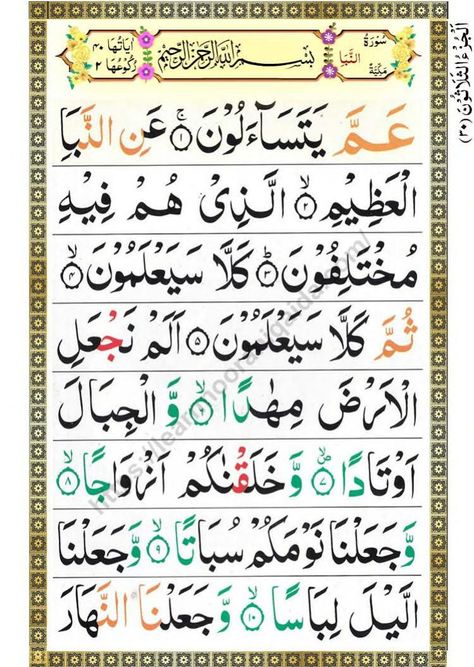 اَلْجُزْءُ الثَّلَاثُوْنَ (٣٠)
سُوْرَةُ النَّبَا مَكِّيَّةٌ
بِسْمِ اللّٰهِ الرَّحْمٰنِ الرَّحِيْمِ
اٰيَاتُهَا ٤٠
رُكُوْعُهَا ٢
عَمَّ يَتَسَآءَلُوْنَ ۚ‏﴿١﴾ عَنِ النَّبَاِ
الْعَظِيْمِ ۙ﴿٢﴾ الَّذِىْ هُمْ فِيْهِ
مُخْتَلِفُوْنَ ؕ﴿٣﴾ كَلَّا سَيَعْلَمُوْنَ ۙ﴿٤﴾
ثُمَّ كَلَّا سَيَعْلَمُوْنَ ﴿٥﴾ اَلَمْ نَجْعَلِ
الْاَرْضَ مِهٰدًا ۙ﴿٦﴾ وَّالْجِبَالَ
اَوْتَادًا ۪ۙ﴿٧﴾ وَّخَلَقْنٰكُمْ اَزْوَاجًا ۙ﴿٨﴾
وَّجَعَلْنَا نَوْمَكُمْ سُبَاتًا ۙ﴿٩﴾ وَّجَعَلْنَا
الَّيْلَ لِبَاسًا ۙ﴿١٠﴾ وَّجَعَلْنَا النَّهَارَ